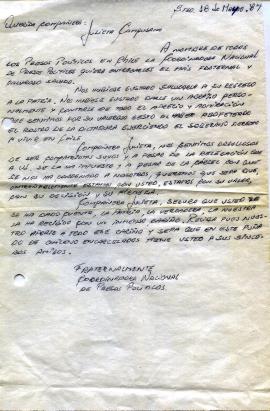 Stgo, 18 de Mayo, 87
Querida compañera:
Julieta Campusano
A nombre de todos
los Presos Políticos en Chile la Coordinadora Nacional
de Presos Políticos quiere entregarle el más fraternal y
caluroso saludo.
Nos hubiese gustado saludarla a su regreso
a la Patria. Nos hubiese gustado darle un abrazo perso-
nalmente y contarle de todo el afecto y admiración
que sentimos por su valeroso gesto al haber abofeteado
el rostro de la dictadura ejerciendo el soberano derecho
a vivir en Chile.
Compañera Julieta, nos sentimos orgullosos
de ser compatriotas suyos y a pesar de la relegación que
a Ud. se la ha impuesto y a pesar de la cárcel con que
se nos ha condenado a nosotros, queremos que sepa que,
estamos con usted, estamos por su valor,
con su decisión y su
Compañera Julieta, seguro que usted
la ha dado Patria, la Patria, la verdadera, la nuestra
la ha recibido con un inmenso cariño. Reciba pues nuestro
aporte a todo ese cariño y sepa que en este puña-
do de chilenos encarcelados tiene usted a sus sinceros
amigos.
Fraternalmente
Coordinadora Nacional
de Presos Políticos.